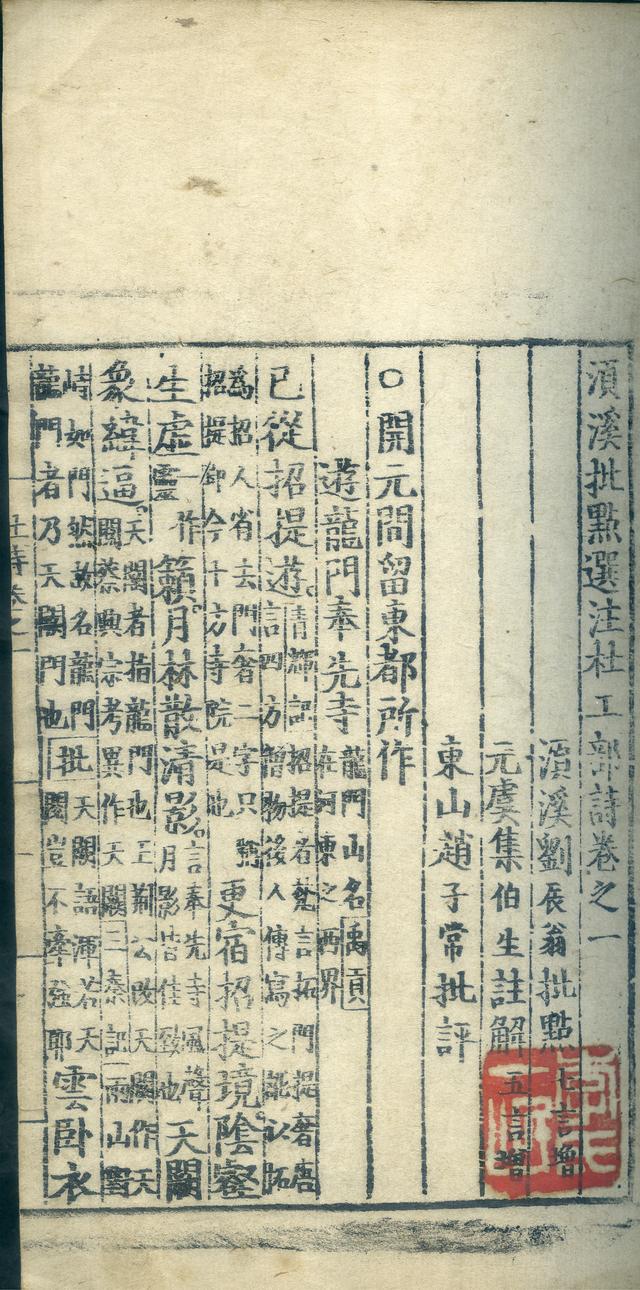 湏溪批點選注杜工部詩卷之一
湏溪劉辰翁批點 七言增
元虞集伯生註解 五言增
東山趙子常批評
○開元間留東都所作
遊龍門奉先寺 龍門山名禹貢在河東之西界
已從招提遊 清輝記招提者梵言拓門提奢唐言四方僧物後人傳寫之訛以拓
為招人省去門奢二字只號招提即今十方寺院是也 更宿招提境陰壑
生虛 一作靈 籟月林散清影 言奉先寺風聲月影皆佳致也 天闕
象緯逼 天闕者指龍門也王荊公改天闕作天閱蔡興宗考異作天闚三秦記兩山對
峙如門然故名龍門龍門者乃天闕門也 批 天闕語渾若天閱豈不牽強耶 雲卧衣
杜詩卷之一